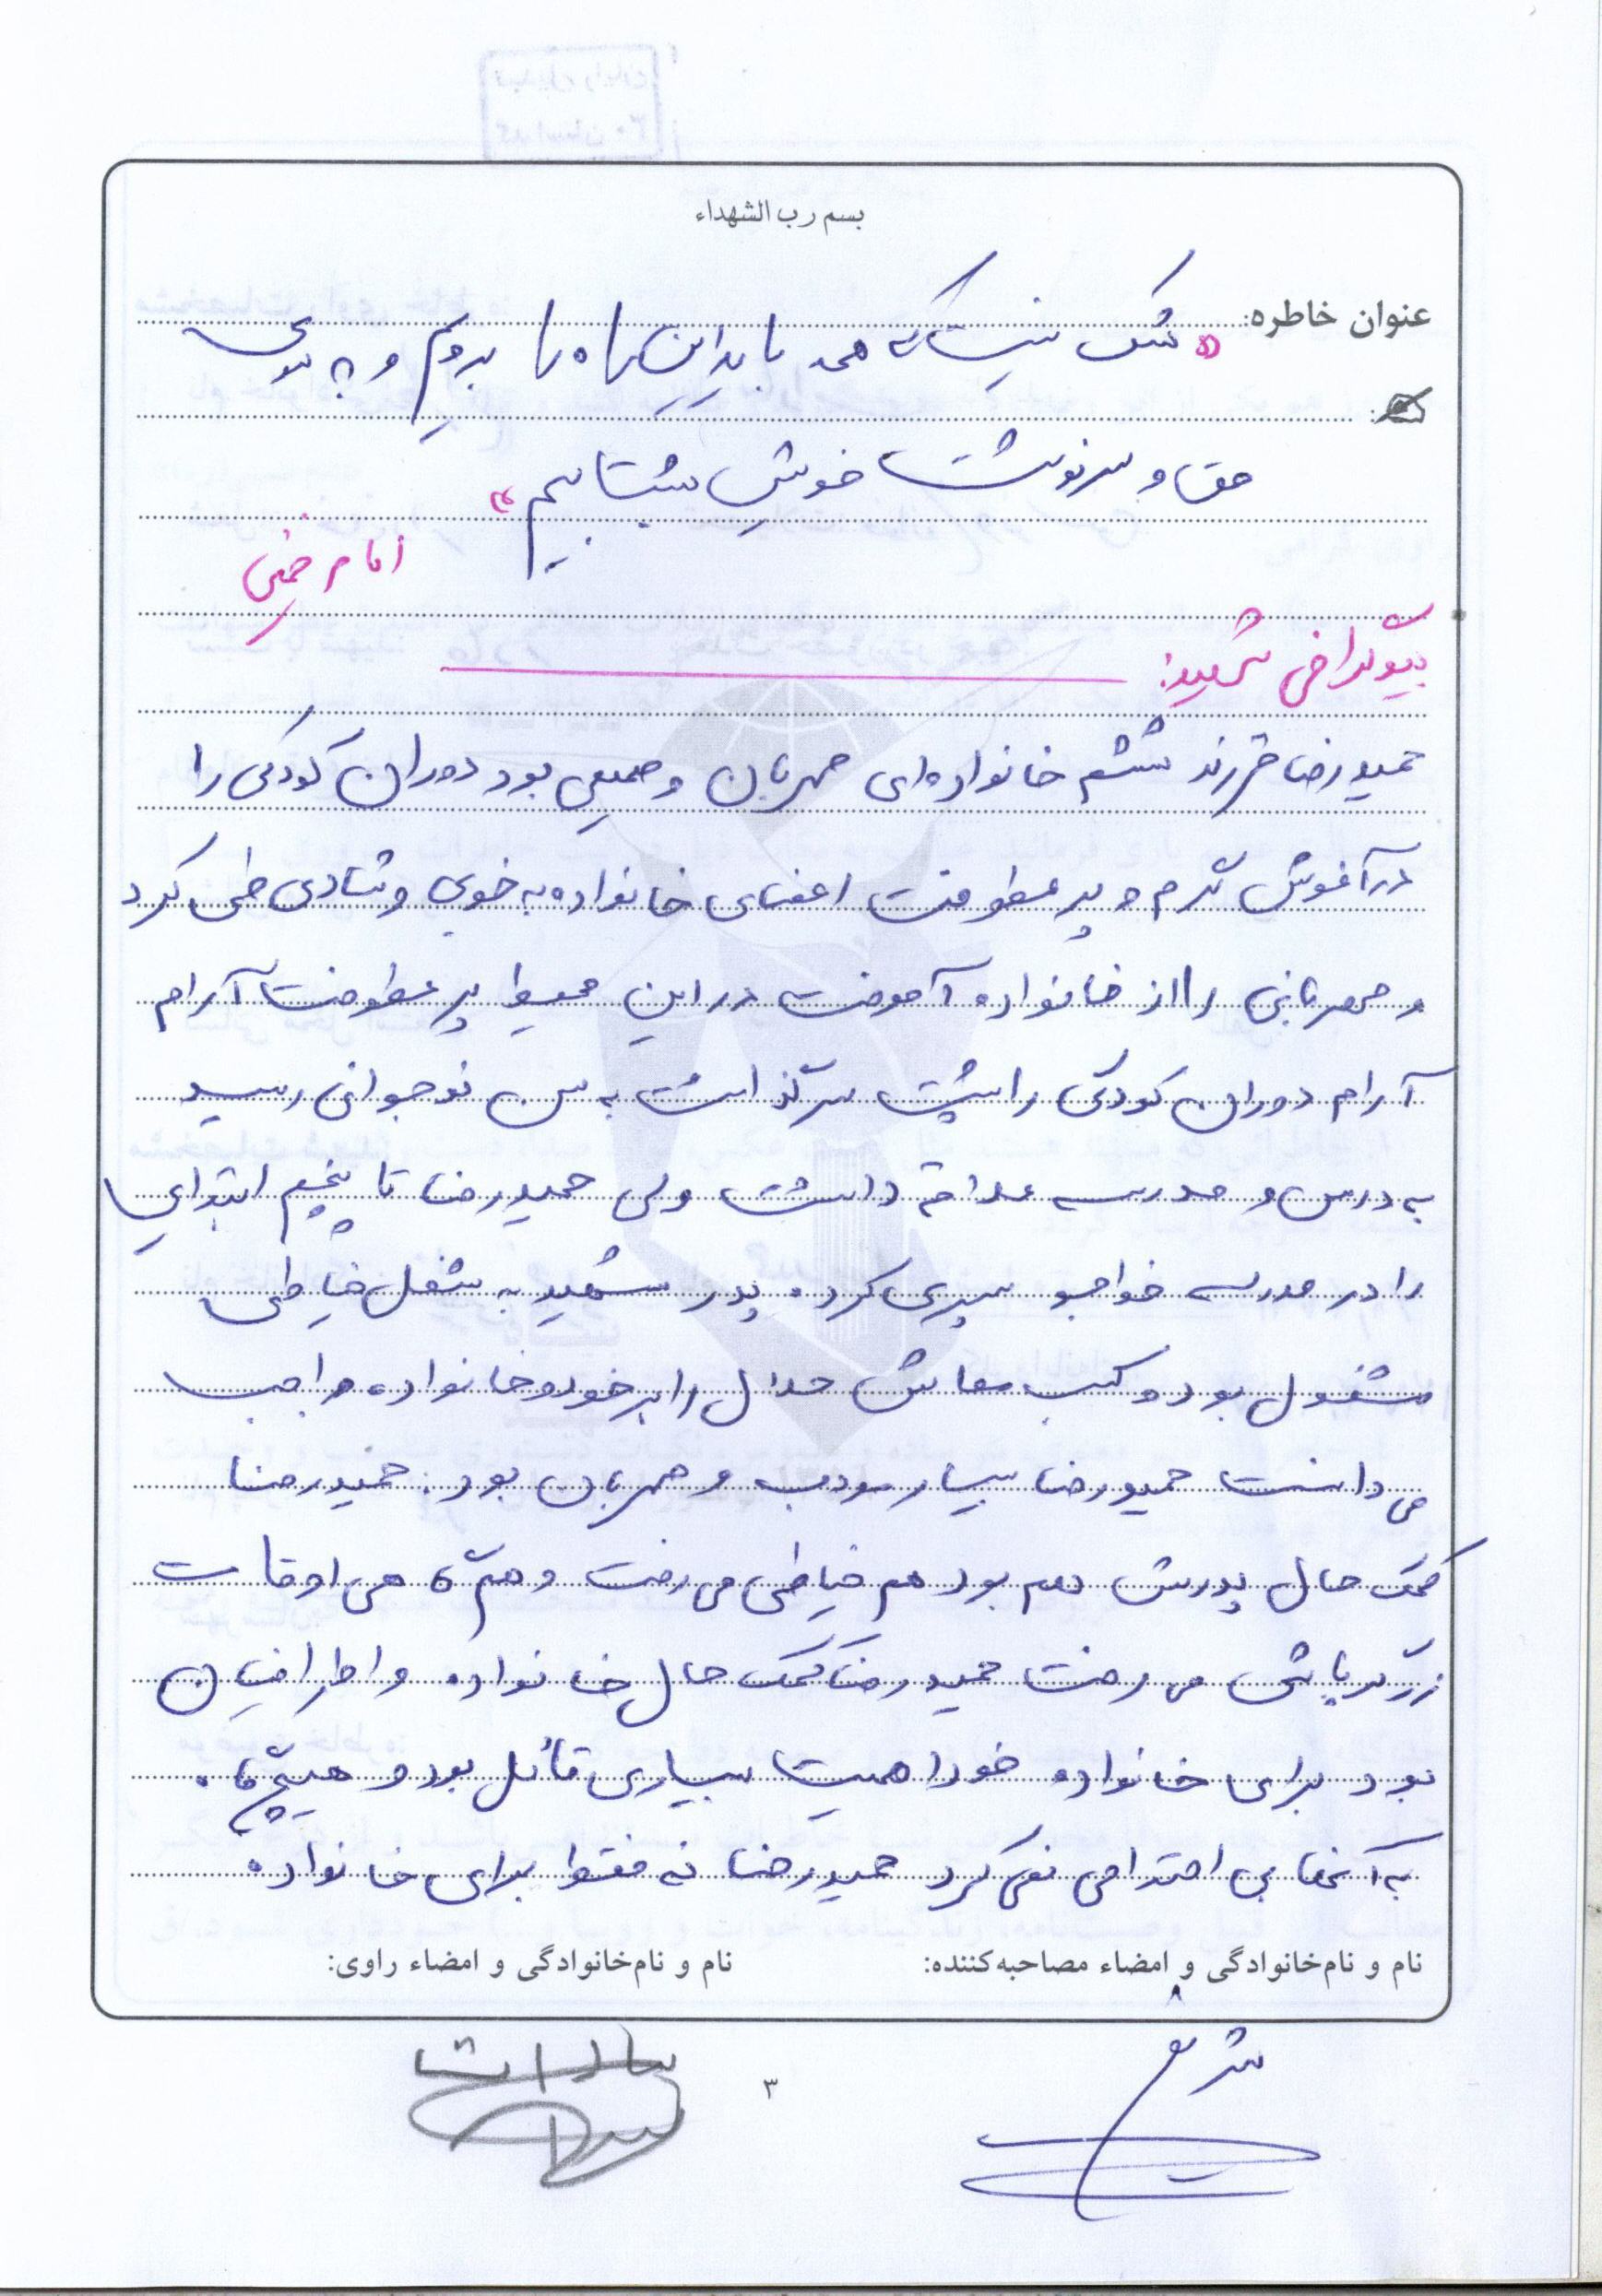 بسم رب الشهداء
عنوان خاطره: «شک نیست که همه باید این راه را برویم و به سوی
حق و سرنوشت خویش بشتابیم»
امام خمینی
بیوگرافی شهید:
حمیدرضا فرزند ششم خانواده‌ای مهربان و صمیمی بود دوران کودکی را
در آغوش گرم و پر عطوفت اعضای خانواده به خوبی و شادی طی کرد
و مهربانی را از خانواده آموخت در این محیط پر عطوفت آرام
آرام دوران کودکی را پشت سر گذاشت به سن نوجوانی رسید
به درس و مدرسه علاقه داشت ولی حمیدرضا تا پنجم ابتدایی
را در مدرسه خواجو سپری کرد. پدر شهید به شغل خیاطی
مشغول بود و کسب معاش حلال را بر خود و خانواده واجب
می دانست حمیدرضا بسیار مودب و مهربان بود. حمیدرضا
کمک حال پدرش هم بود هم خیاطی می رفت و هم گاهی اوقات
زرگر باشی می رفت حمیدرضا کمک حال خانواده و اطرافیان
بود برای خانواده خود اهمیت بسیاری قائل بود و هیچگاه
به آنها بی احترامی نمی کرد حمیدرضا نه فقط برای خانواده
نام و نام‌خانوادگی و امضاء مصاحبه‌کننده: نام و نام‌خانوادگی و امضاء راوی:
۳